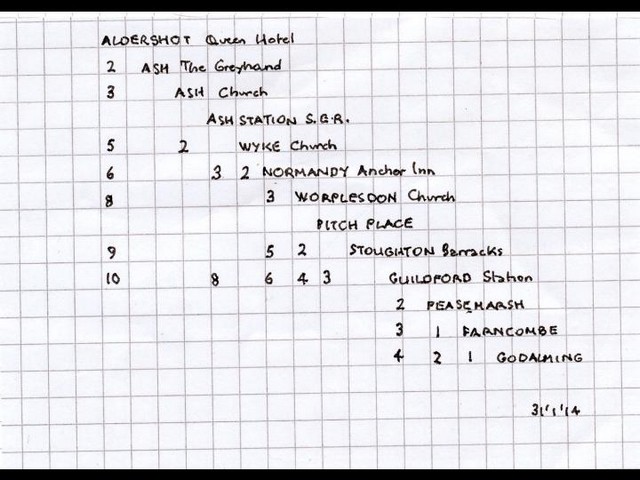 ALDERSHOT Queen Hotel
2 ASH The Greyhand
3 ASH Church
ASH STATION S.G.R.
5 2 WYKE Church
6 3 2 NORMANDY Anchor Inn
8 3 WORPLESDON Church
PITCH PLACE
9 5 2 STOUGHTON Barracks
10 8 6 4 3 GUILDFORD Station
2 PEASEMARSH
3 1 FARNCOMBE
4 2 1 GODALMING
31'1'14